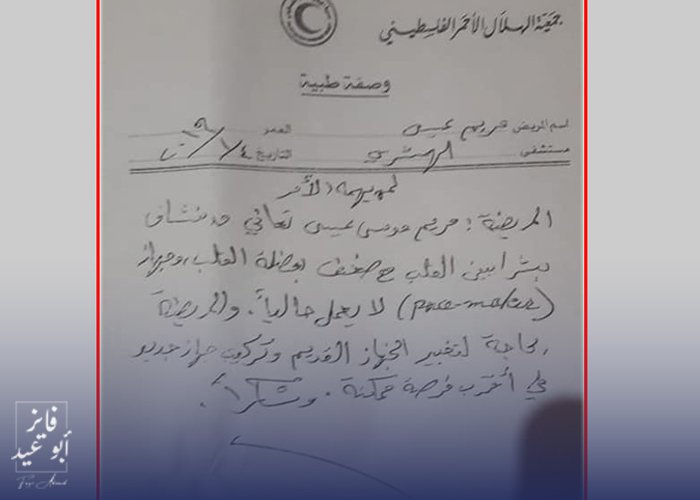 جمعية الهلال الأحمر الفلسطيني
وصفة طبية
اسم المريض مريم عيسى العمر
مستشفى الهمشري التاريخ
لمن يهمه الأمر
المريضة : مريم موسى عيسى تعاني من نشاف
بشرايين القلب مع ضعف بعضلة القلب، وجهاز
(pace-maker) لا يعمل حالياً. والمريضة
بحاجة لتغيير الجهاز القديم وتركيب جهاز جديد
في أقرب فرصة ممكنة. وشكراً.
فايز
أبو عيد